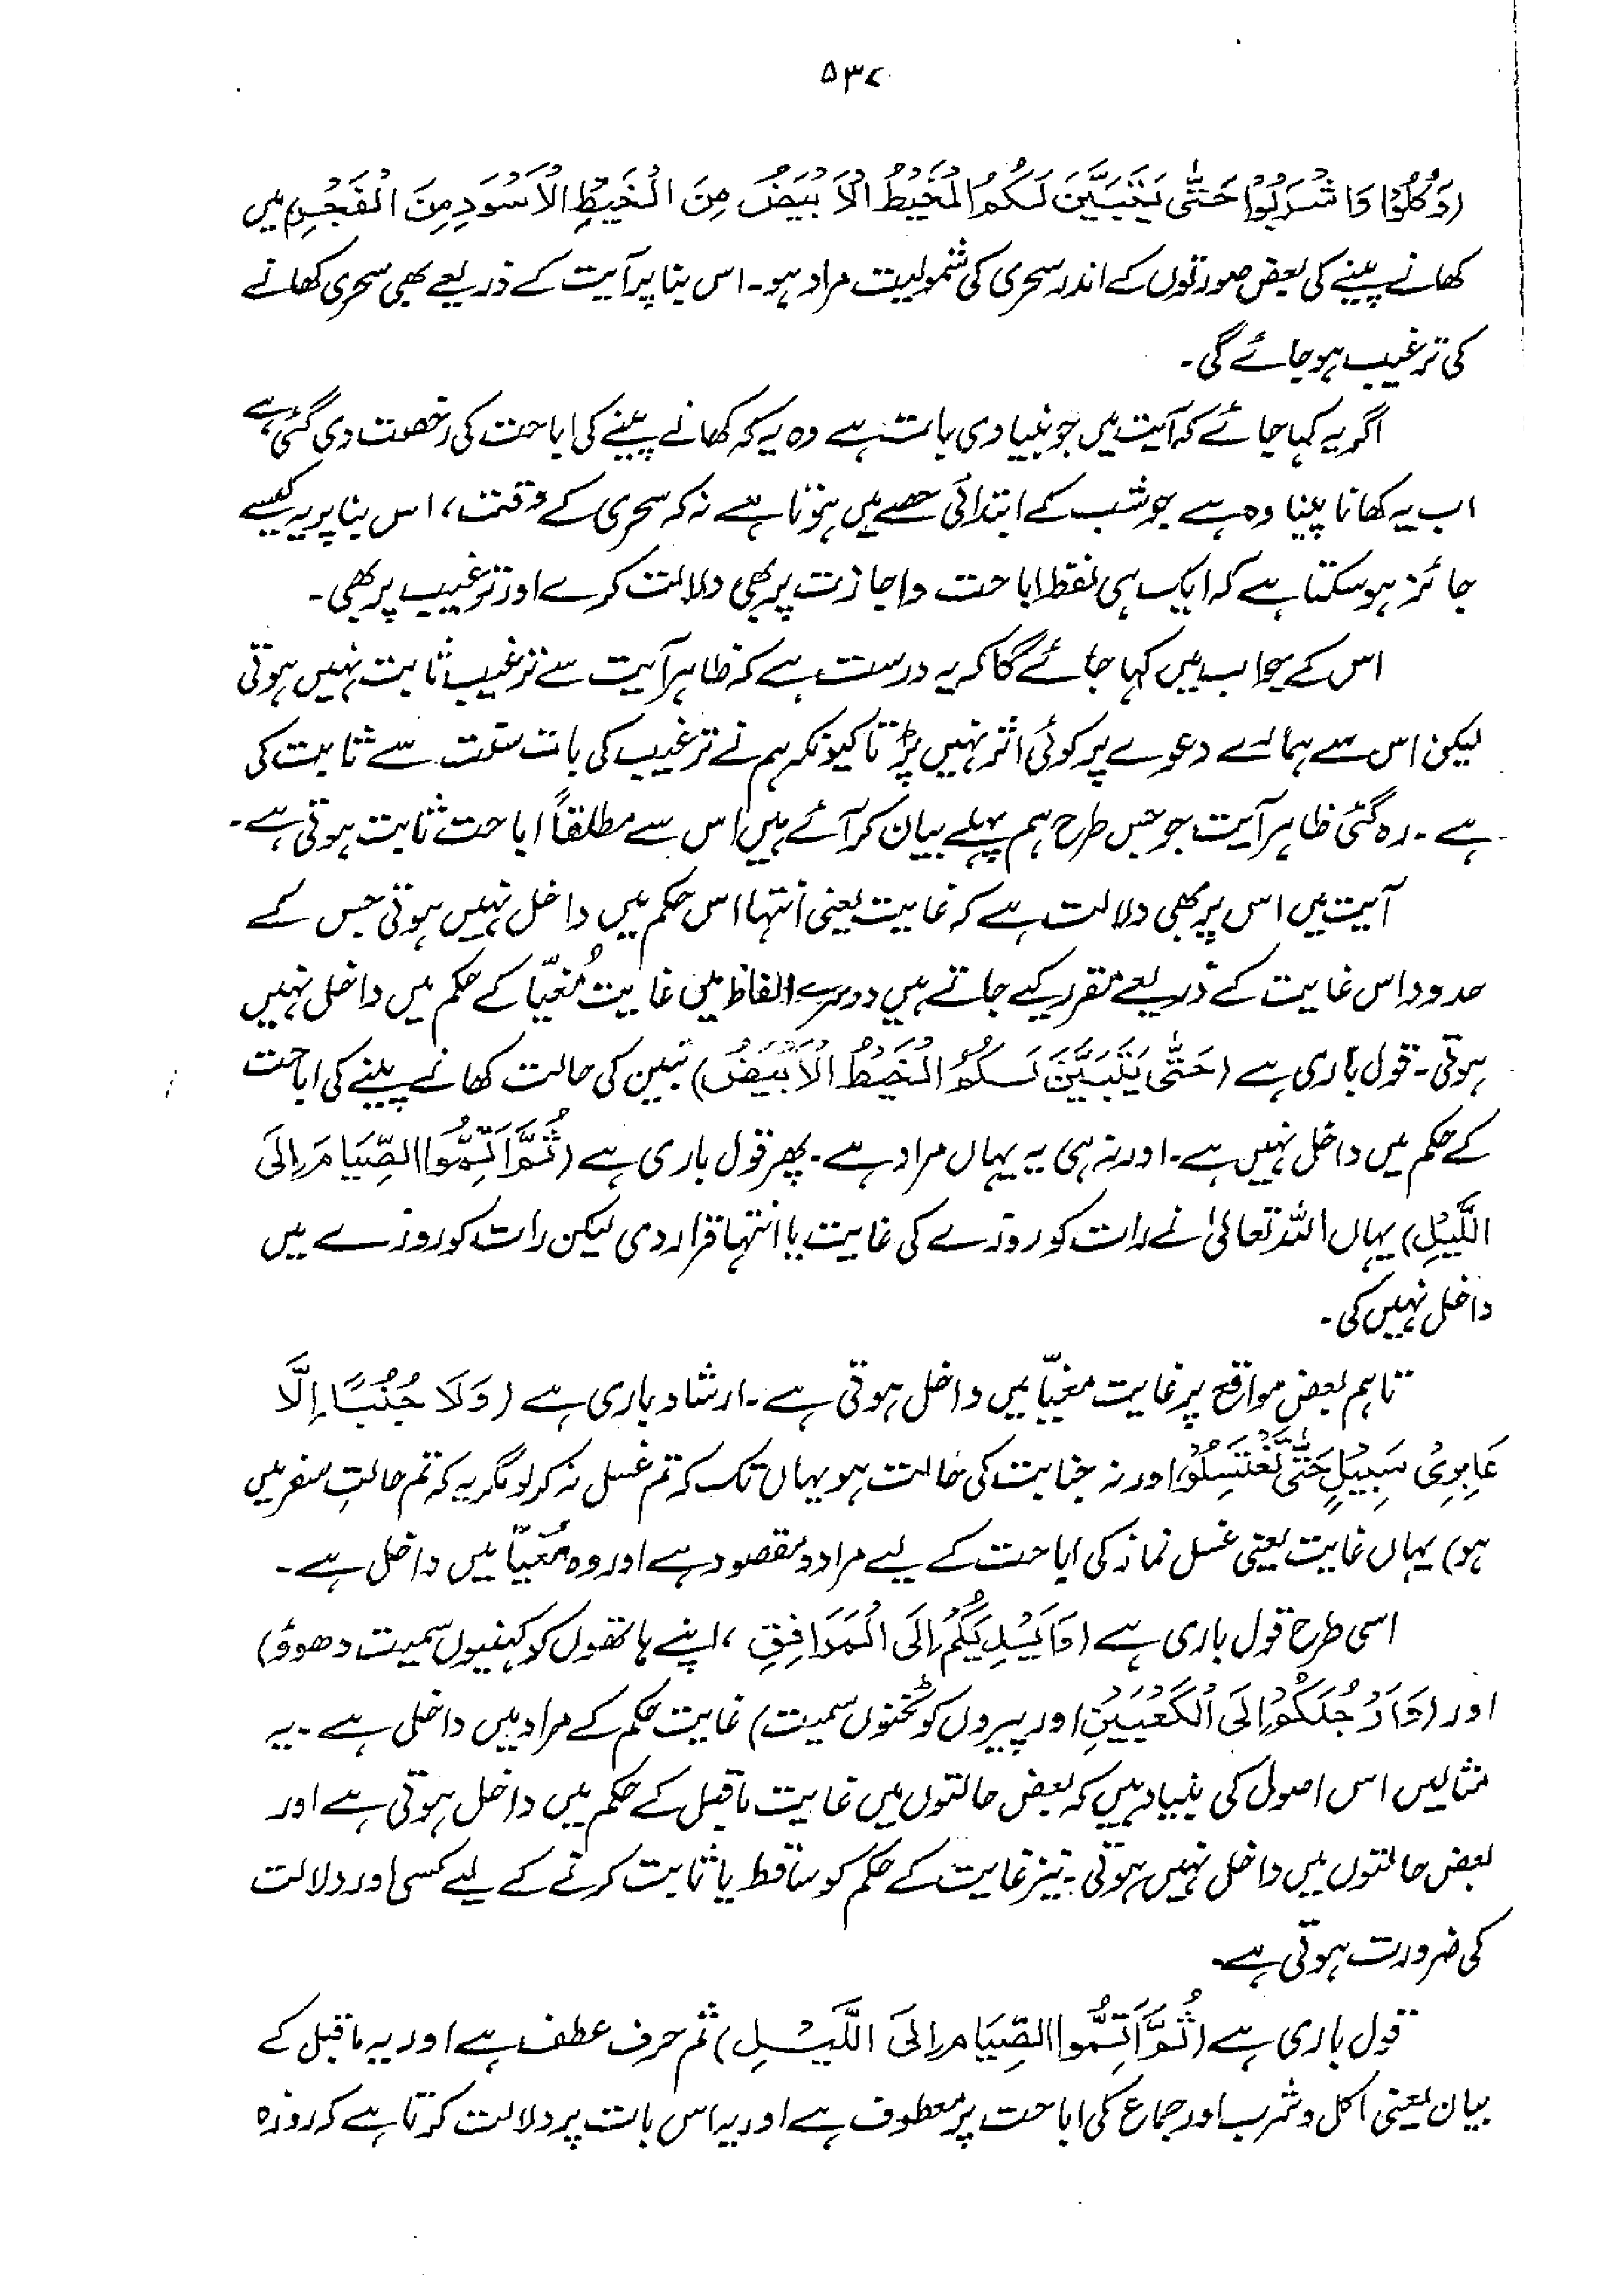 ۵۳۷
(وَكُلُوْا وَاشْرَبُوْا حَتّٰى يَتَبَيَّنَ لَكُمُ الْخَيْطُ الْاَبْيَضُ مِنَ الْخَيْطِ الْاَسْوَدِ مِنَ الْفَجْرِ) میں
کھانے پینے کی بعض صورتوں کے اندر سحری کی شمولیت مراد ہو۔ اس بنا پر آیت کے ذریعے بھی سحری کھانے
کی ترغیب ہو جائے گی۔
اگر یہ کہا جائے کہ آیت میں جو بنیادی بات ہے وہ یہ کہ کھانے پینے کی اباحت کی رخصت دی گئی ہے
اب یہ کھانا پینا وہ ہے جو شب کے ابتدائی حصے میں ہوتا ہے نہ کہ سحری کے وقت، اس بنا پر یہ کیسے
جائز ہو سکتا ہے کہ ایک ہی لفظ اباحت و اجازت پر بھی دلالت کرے اور ترغیب پر بھی۔
اس کے جواب میں کہا جائے گا کہ یہ درست ہے کہ ظاہر آیت سے ترغیب ثابت نہیں ہوتی
لیکن اس سے ہمارے دعوے پر کوئی اثر نہیں پڑتا کیونکہ ہم نے ترغیب کی بات سنت سے ثابت کی
ہے۔ رہ گئی ظاہر آیت جو جس طرح ہم پہلے بیان کر آئے ہیں اس سے مطلقاً اباحت ثابت ہوتی ہے۔
آیت میں اس پر بھی دلالت ہے کہ غایت یعنی انتہا اس حکم میں داخل نہیں ہوتی جس کے
حدود اس غایت کے ذریعے مقرر کیے جاتے ہیں دوسرے الفاظ میں غایت مُغیّا کے حکم میں داخل نہیں
ہوتی۔ قول باری ہے (حَتّٰى يَتَبَيَّنَ لَكُمُ الْخَيْطُ الْاَبْيَضُ) تبین کی حالت کھانے پینے کی اباحت
کے حکم میں داخل نہیں ہے۔ اور نہ ہی یہ یہاں مراد ہے۔ پھر قول باری ہے (ثُمَّ اَتِمُّوا الصِّيَامَ اِلَى
اللَّيْلِ) یہاں اللہ تعالیٰ نے رات کو روزے کی غایت یا انتہا قرار دی لیکن رات کو روزے میں
داخل نہیں کی۔
تاہم بعض مواقع پر غایت مغیّا میں داخل ہوتی ہے۔ ارشاد باری ہے (وَلَا جُنُبًا اِلَّا
عَابِرِىْ سَبِيْلٍ حَتّٰى تَغْتَسِلُوْا اور نہ جنابت کی حالت ہو یہاں تک کہ تم غسل نہ کر لو مگر یہ کہ تم حالتِ سفر میں
ہو) یہاں غایت یعنی غسل نماز کی اباحت کے لیے مراد و مقصود ہے اور وہ مُغیّا میں داخل ہے۔
اسی طرح قول باری ہے (وَاَيْدِيَكُمْ اِلَى الْمَرَافِقِ، اپنے ہاتھوں کو کہنیوں سمیت دھوؤ)
اور (وَاَرْجُلَكُمْ اِلَى الْكَعْبَيْنِ اور پیروں کو ٹخنوں سمیت) غایت حکم کے مراد میں داخل ہے۔ یہ
مثالیں اس اصول کی بنیاد ہیں کہ بعض حالتوں میں غایت ماقبل کے حکم میں داخل ہوتی ہے اور
بعض حالتوں میں داخل نہیں ہوتی۔ نیز غایت کے حکم کو ساقط یا ثابت کرنے کے لیے کسی اور دلالت
کی ضرورت ہوتی ہے۔
قول باری ہے (ثُمَّ اَتِمُّوا الصِّيَامَ اِلَى اللَّيْلِ) ثم حرف عطف ہے اور یہ ماقبل کے
بیان یعنی اکل و شرب اور جماع کی اباحت پر معطوف ہے اور یہ اس بات پر دلالت کرتا ہے کہ روزہ